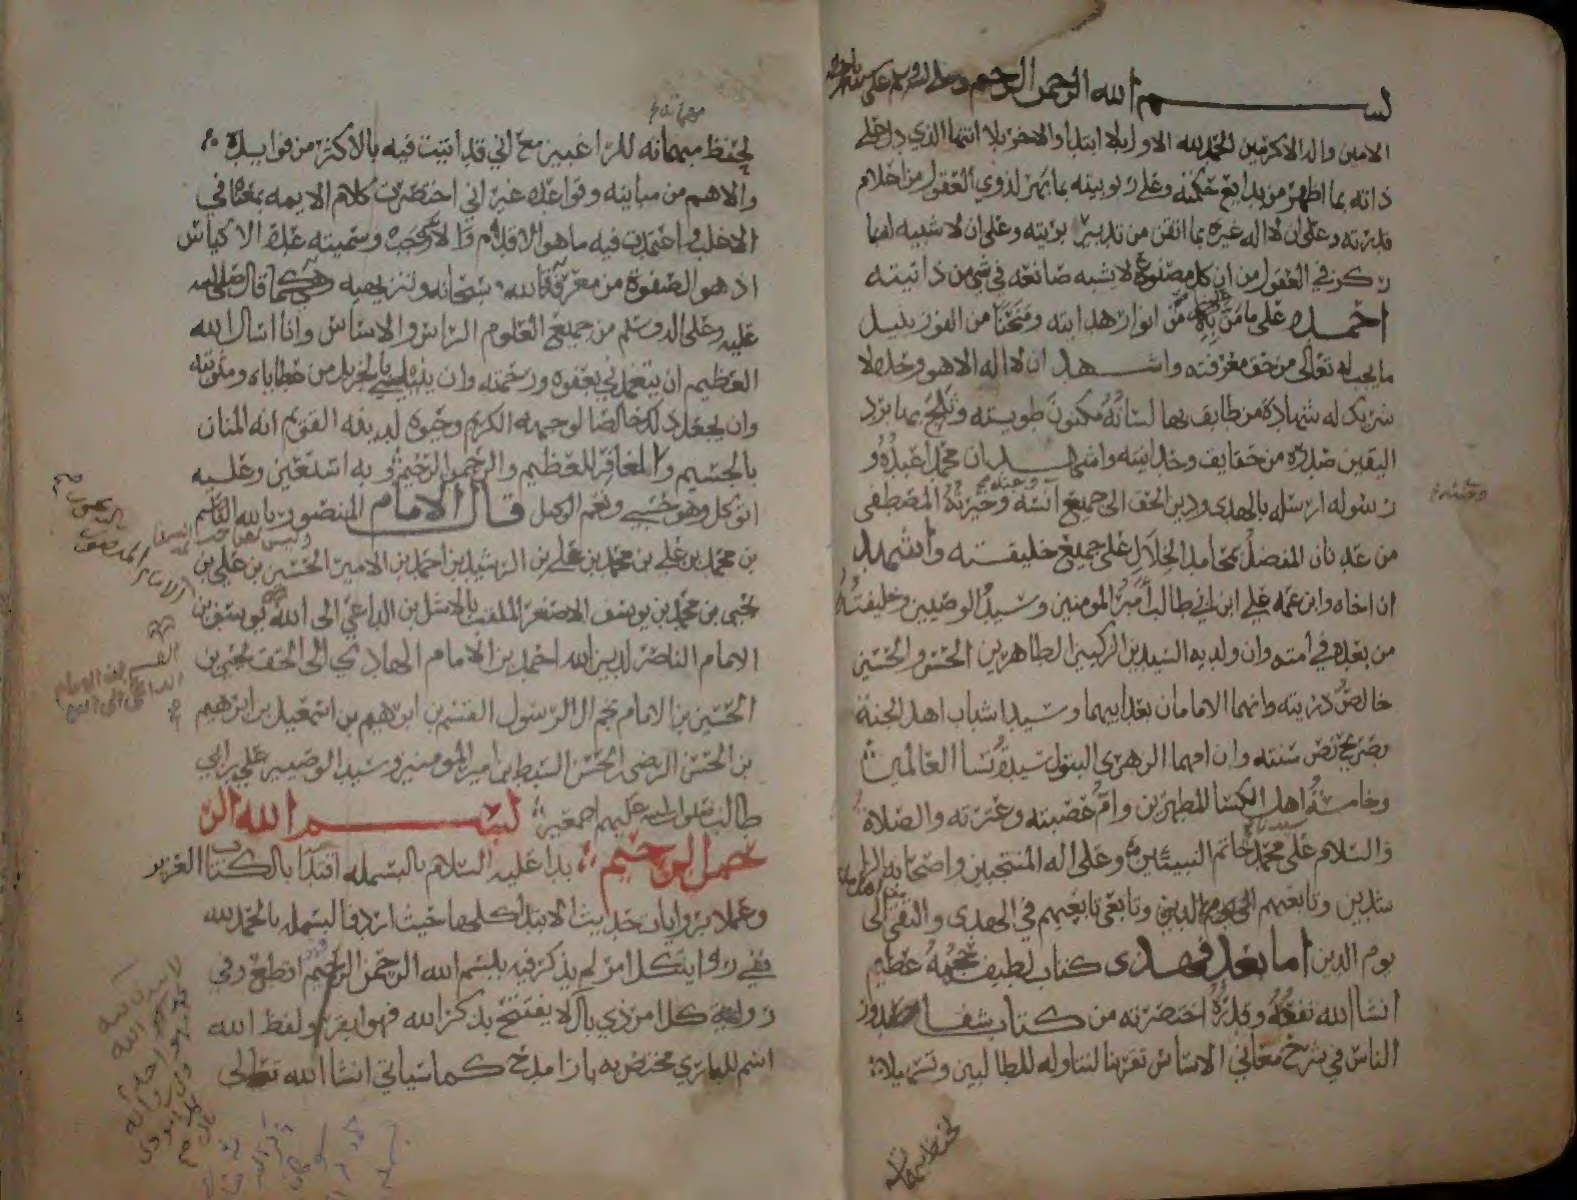 بسم الله الرحمن الرحيم وصلى الله وسلم على
الامين واله الاكرمين الحمد لله الاول بلا ابتدا والاخر بلا انتها الذي دل على
ذاته بما اظهر من بدايع حكمته وعلى ربوبيته بما بهر لذوي العقول من احكام
قدرته وعلى ان لا اله غيره بما اتقن من تدبير بريته وعلى ان لا شبيه له بما
ركز في العقول من ان كل مصنوع لا يشبه صانعه في شي من ذاتيته
احمده على ما من به من انوار هدايته ومنحنا من الفوز بنيل
ما يجب له تعالى من حق معرفته واشهد ان لا اله الا هو وحده لا
شريك له شهادة من طابق بها لسانه مكنون طويته وثلج بها برد
اليقين صدره من حقايق وحدانيته واشهد ان محمدا عبده و
رسوله ارسله بالهدى ودين الحق الى جميع انسه وجنته وخيرته المصطفى
من عدنان المفضل بمحامد الجلال على جميع خليقته واشهد
ان اخاه وابن عمه علي ابن ابي طالب امير المومنين وسيد الوصيين وخليفته
من بعده في امته وان ولديه السيدين الزكيين الطاهرين الحسن والحسين
خالص ذريته وانهما الامامان بعد ابيهما وسيدا شباب اهل الجنة
بصريح نص سنته وان امهما الزهرى البتول سيدة نسا العالمين
وخامسة اهل الكسا المطهرين وام عصبته وعترته والصلاة
والسلام على سيدنا محمد خاتم النبيين وعلى اله المنتجبين واصحابه الرا
شدين وتابعيهم الى يوم الدين وتابعي تابعيهم في الهدى والتقى الى
يوم الدين اما بعد فهذى كتاب لطيف حجمه عظيم
انشا الله نفعه وقدره اختصرته من كتاب شفا صدور
الناس في شرح معاني الاساس تقريبا لتناوله للطالبين وتسهيلا
لحفظ مبهماته
لحفظ مبهماته للراغبين مع اني قد اتيت فيه بالاكثر من فوايده
والاهم من مبانيه وقواعده غير اني اختصرت كلام الايمه بمعنى في
الاغلب واعتمدت فيه ما هو الاقدم والارجح وسميته عدة الاكياس
اذ هو الصفوة من معرفة الله سبحانه وتنزيهه وهي كما قال صلى الله
عليه وعلى اله وسلم من جميع العلوم الراس والاساس وانا اسال الله
العظيم ان يتغمدني بعفوه ورحمته وان ينيلني الجزيل من عطاياه ومثوبته
وان يجعل ذلك خالصا لوجهه الكريم وحبوه لدينه القويم انه المنان
بالجسيم والغافر للعظيم والرحمن الرحيم وبه استعين وعليه
اتوكل وهو حسبي ونعم الوكيل قال الامام المنصور بالله القاسم
بن محمد بن علي بن محمد بن علي بن الرشيد بن احمد بن الامير الحسين بن علي بن
يحيى بن محمد بن يوسف الاصغر الملقب بالاشل بن الداعي الى الله يوسف بن
الامام الناصر لدين الله احمد بن الامام الهادي الى الحق يحيى بن
الحسين بن الامام نجم ال الرسول القسم بن ابرهيم بن اسمعيل بن ابرهيم
بن الحسن الرضى الحسن السبط بن امير المومنين وسيد الوصيين علي بن ابي
طالب صلوات الله عليهم اجمعين بسم الله الر
حمن الرحيم بدا عليه السلام بالبسمله اقتدا بالكتاب العزيز
وعملا بروايات حديث الابتدا كلها حيث اردف البسمله بالحمد لله
ففي رواية كل امر لم يذكر فيه ببسم الله الرحمن الرحيم اقطع وفي
رواية كل امر ذي بال لا يفتتح بذكر الله فهو ابتر ولفظ الله
اسم للباري مختص به بازا مدح كما سياتي انشا الله تعالى